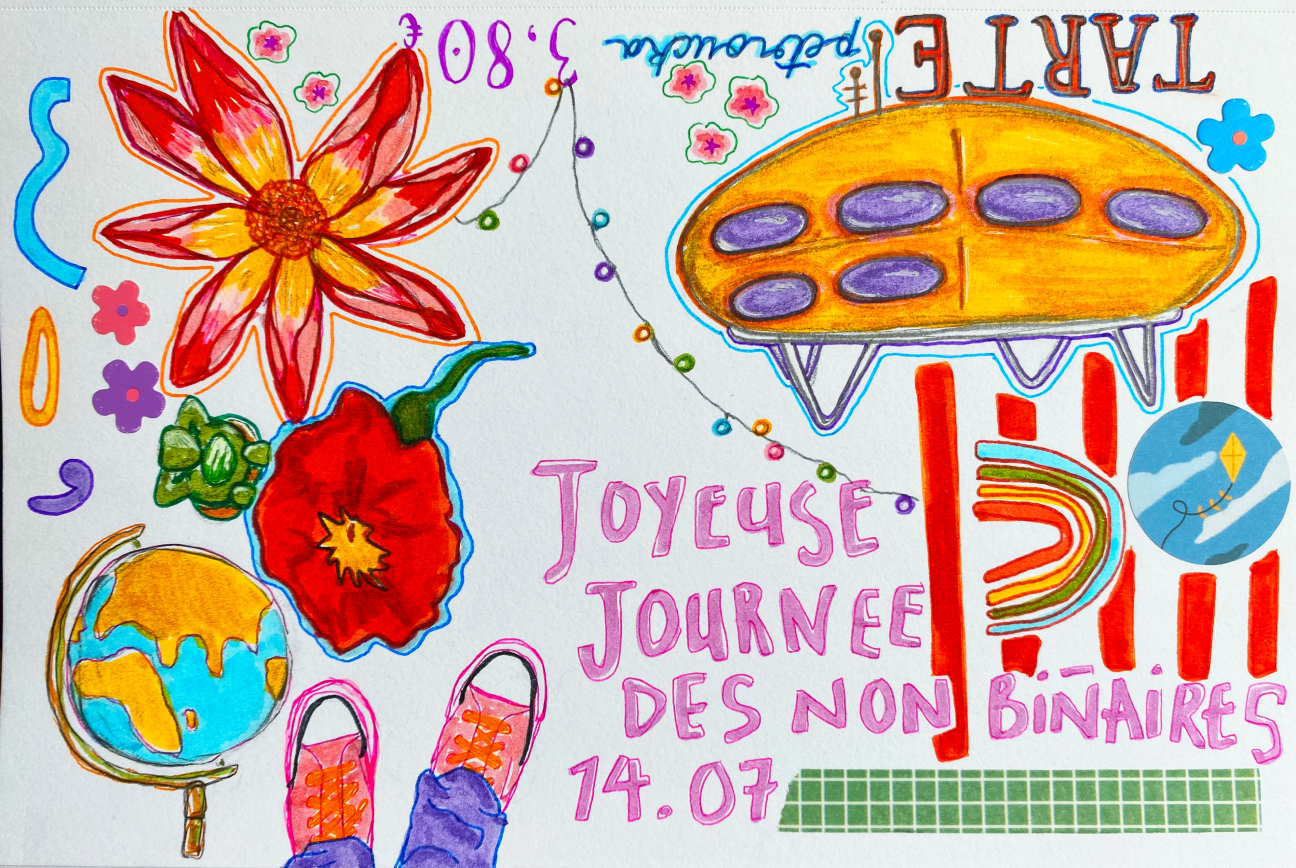 TARTE
petroucka
3.80 €
JOYEUSE
JOURNEE
DES NON BiNAiRES
14.07